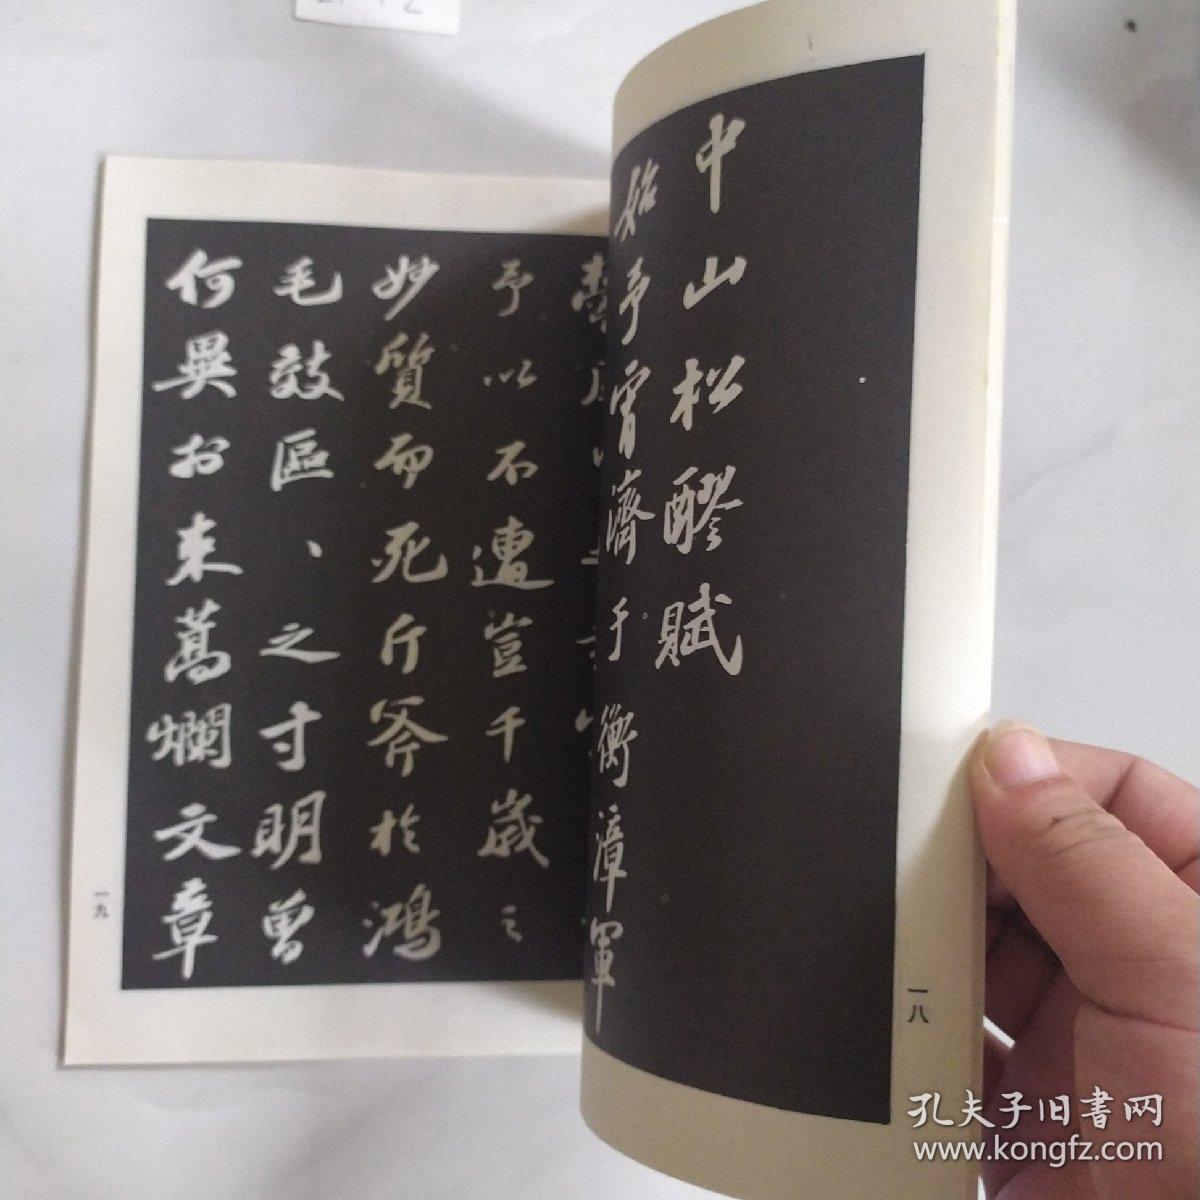 中山松醪賦
始予宵濟于衡漳軍
予以不遭豈千歲之
妙質而死斤斧於鴻
毛效區、之寸明曾
何異於束蒿爛文章
一八
一九
孔夫子旧書网
www.kongfz.com